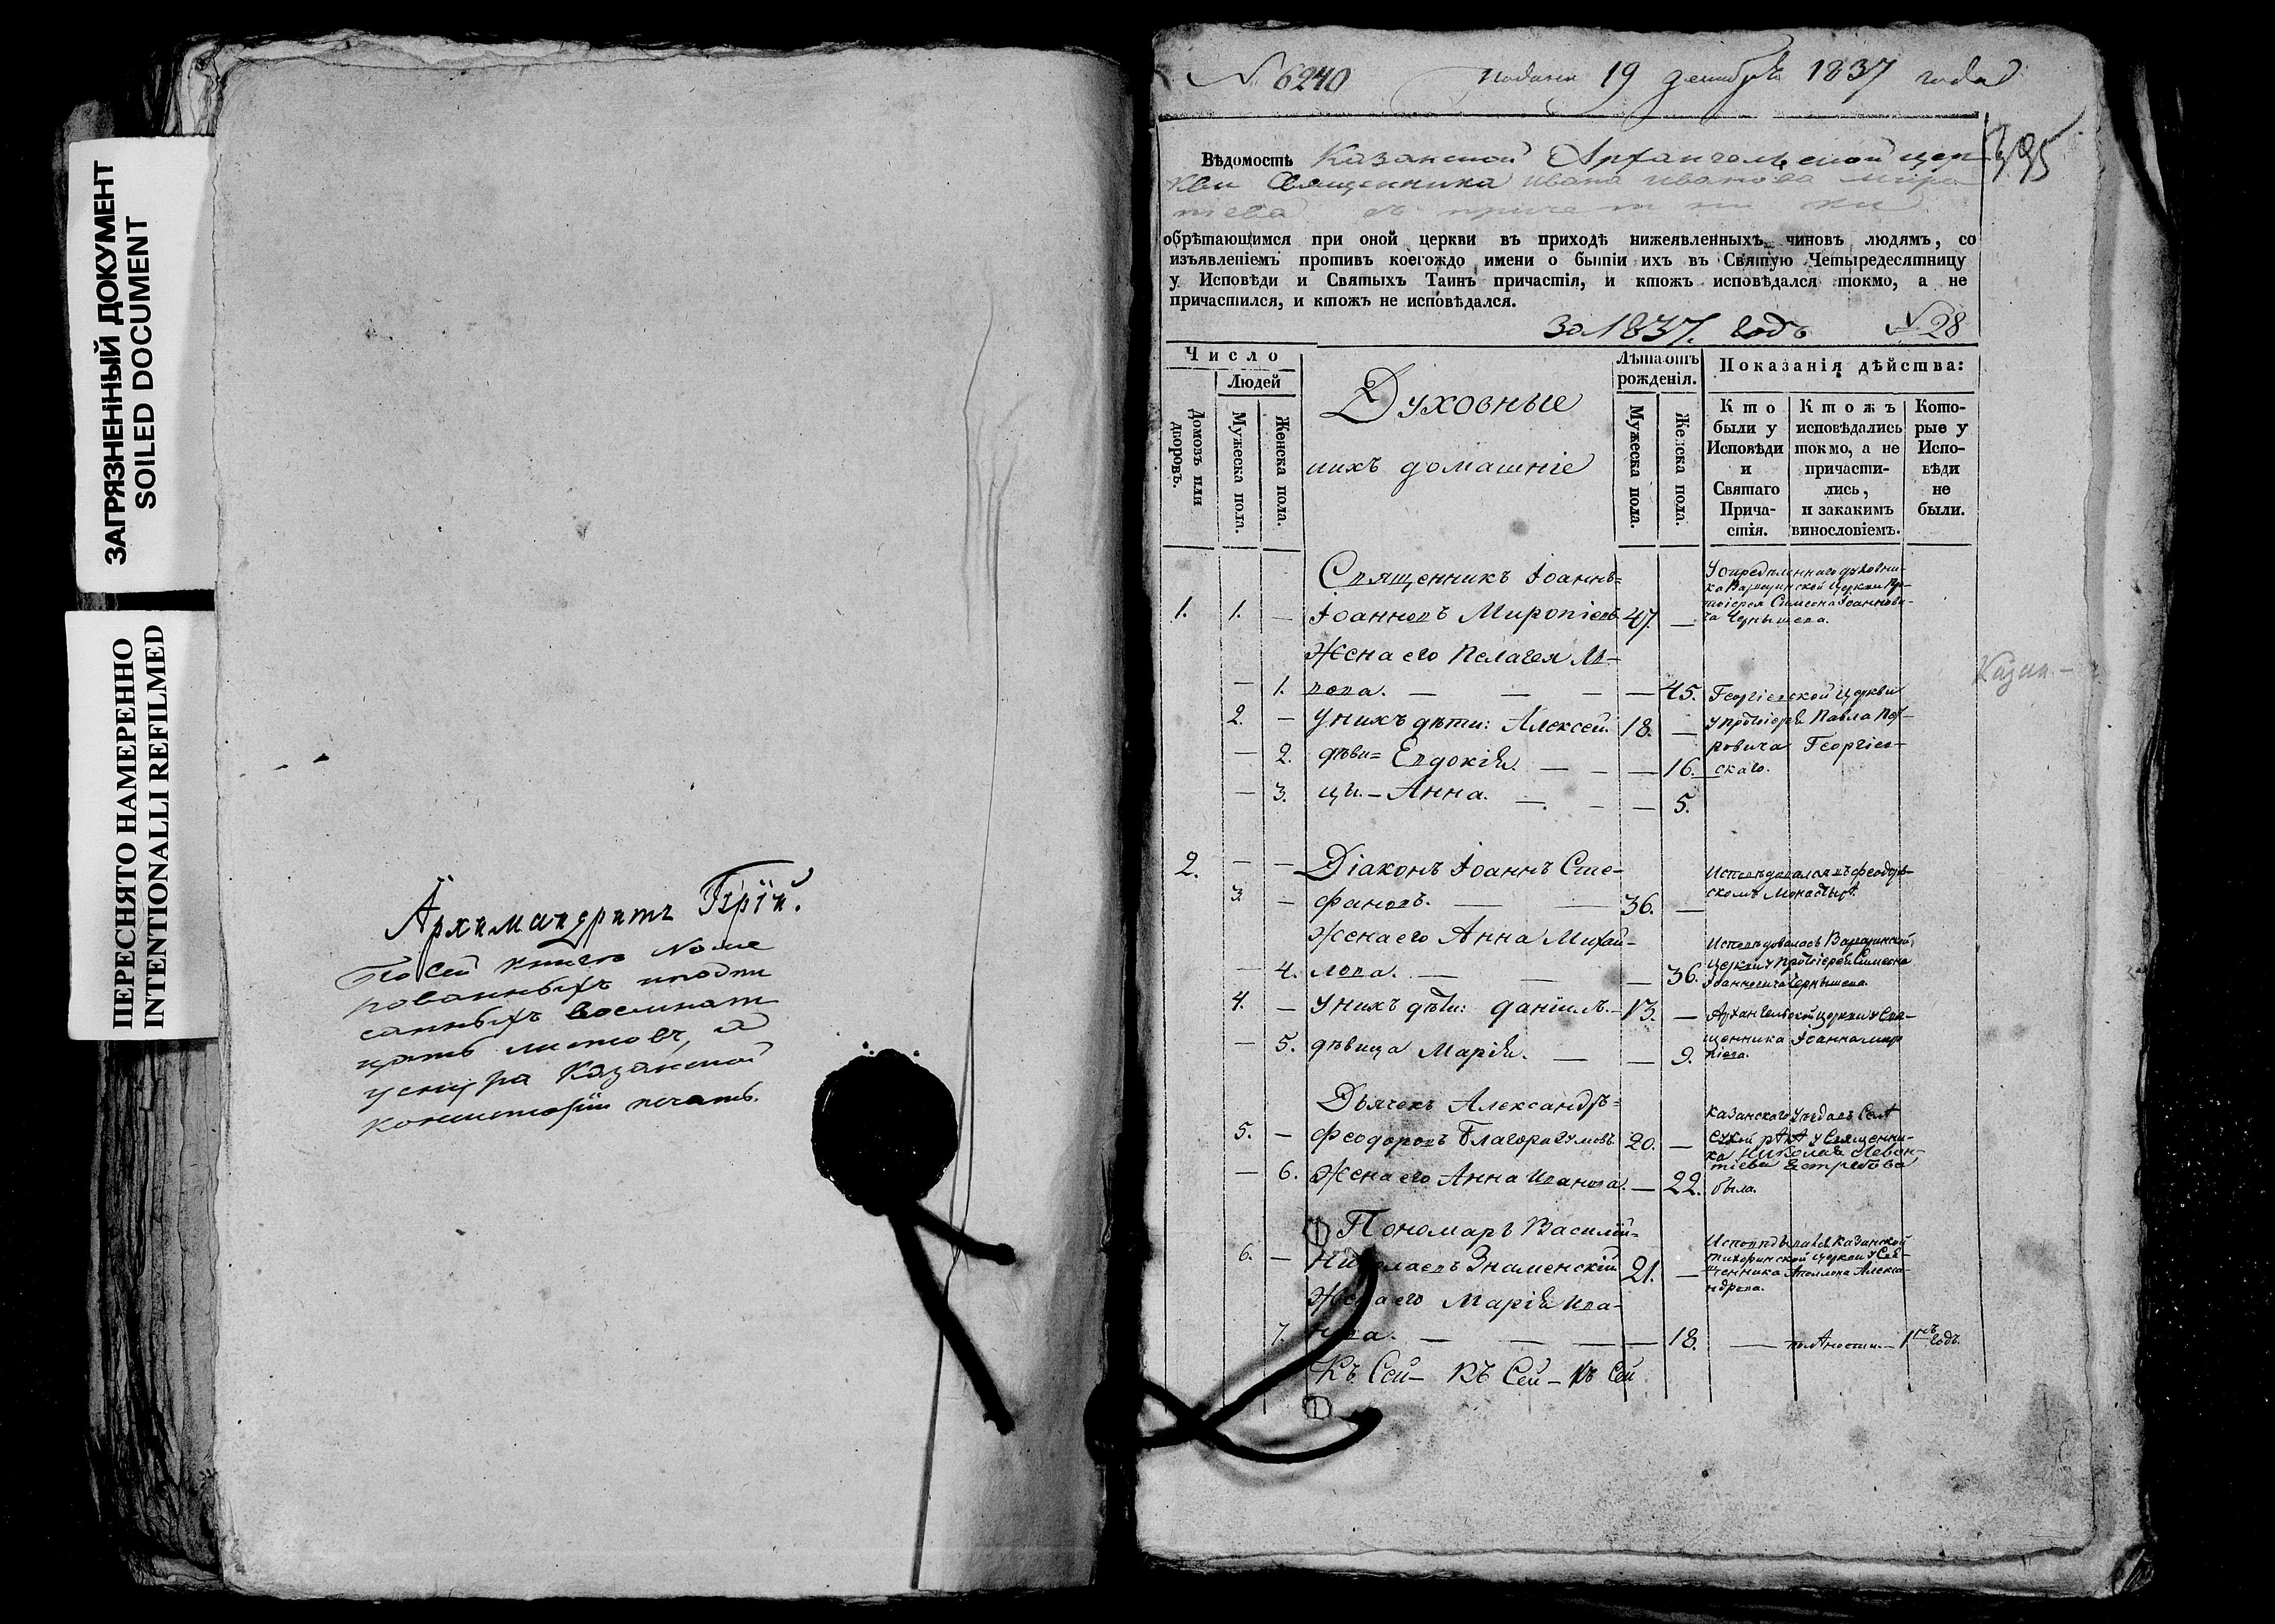 ЗАГРЯЗНЕННЫЙ ДОКУМЕНТ
SOILED DOCUMENT
ПЕРЕСНЯТО НАМЕРЕННО
INTENTIONALLI REFILMED
Архимандритъ Гурій.
По сей книге номе
рованныхъ и подпи
санныхъ восемнат
цать листовъ, а
у сн
ра Казанской
консисторіи печать.
№ 6240 Подана 19 декабря 1837 года
395
Вѣдомость Казанской Архангельской цер
кви Священника Ивана Иванова Миро
піева съ причетники
обрѣтающимся при оной церкви въ приходѣ нижеявленныхъ чиновъ людямъ, со
изъявленіемъ противъ коегождо имени о бытіи ихъ въ Святую Четыредесятницу
у Исповѣди и Святыхъ Таинъ причастія, и ктожъ исповѣдался токмо, а не
причастился, и ктожъ не исповѣдался.
За 1837. годъ № 28
Число
Людей
Домовъ или дворовъ.
Мужеска пола.
Женска пола.
Духовные
и ихъ домашніе
Лѣта отъ рожденія.
Мужеска пола.
Женска пола.
Показанія дѣйства:
Кто были у Исповѣди и Святаго Прича- стія.
Ктожъ исповѣдались токмо, а не причасти- лись, и закакимъ винословіемъ.
Кото- рые у Испо- вѣди не были.
Священникъ Іоаннъ=
1. 1. — Іоанновъ Миропіевъ 47. —
У опредѣленнаго духовни-
ка Варваринской Церкви Про-
тоіерея Симеона Іоаннови-
ча Чернышева.
Жена его Пелагея Ль-
— 1. вова. — — — — 45. Георгіевской церкви
2. — У нихъ дѣти: Алексей. 18. — у протоіерея Павла Пет-
— 2. дѣви= Евдокія. — — — 16. ровича Георгіев-
скаго.
— 3. цы. — Анна. — — — 5.
Казан. —
2. — — Діаконъ Іоаннъ Сте-
3. — фановъ. — — 36. —
Исповѣдовался въ Феодоров-
скомъ Монастырѣ
Жена его Анна Михай-
— 4. лова. — — — 36.
Исповѣдовалась Варваринской
церкви у протоіерея Симеона
Іоанновича Чернышева.
4. — У нихъ дѣти: Даніилъ. — 13. — Архангельской церкви у Свя-
— 5. дѣвица Марія. — — 9. щенника Іоанна Миро
піева.
Дьячекъ Александръ=
5. — Феодоровъ Благоразумовъ 20. —
— 6. Жена его Анна Иванова. — 22.
Казанскаго Уѣзда въ Селѣ
Сухой рѣкѣ у Священни-
ка Николая Левон-
тіева Ястребова
была.
Пономарь Василій=
6. — Николаевъ Знаменскій 21. —
Исповѣдывался Казанской
Тихвинской церкви у Свя-
щенника Аполлона Алекса-
ндрова.
Жена его Марія Ива-
7. нова. — — — — 18. — по лѣности — 1нъ годъ.
Къ Сей — Къ Сей — Къ Сей